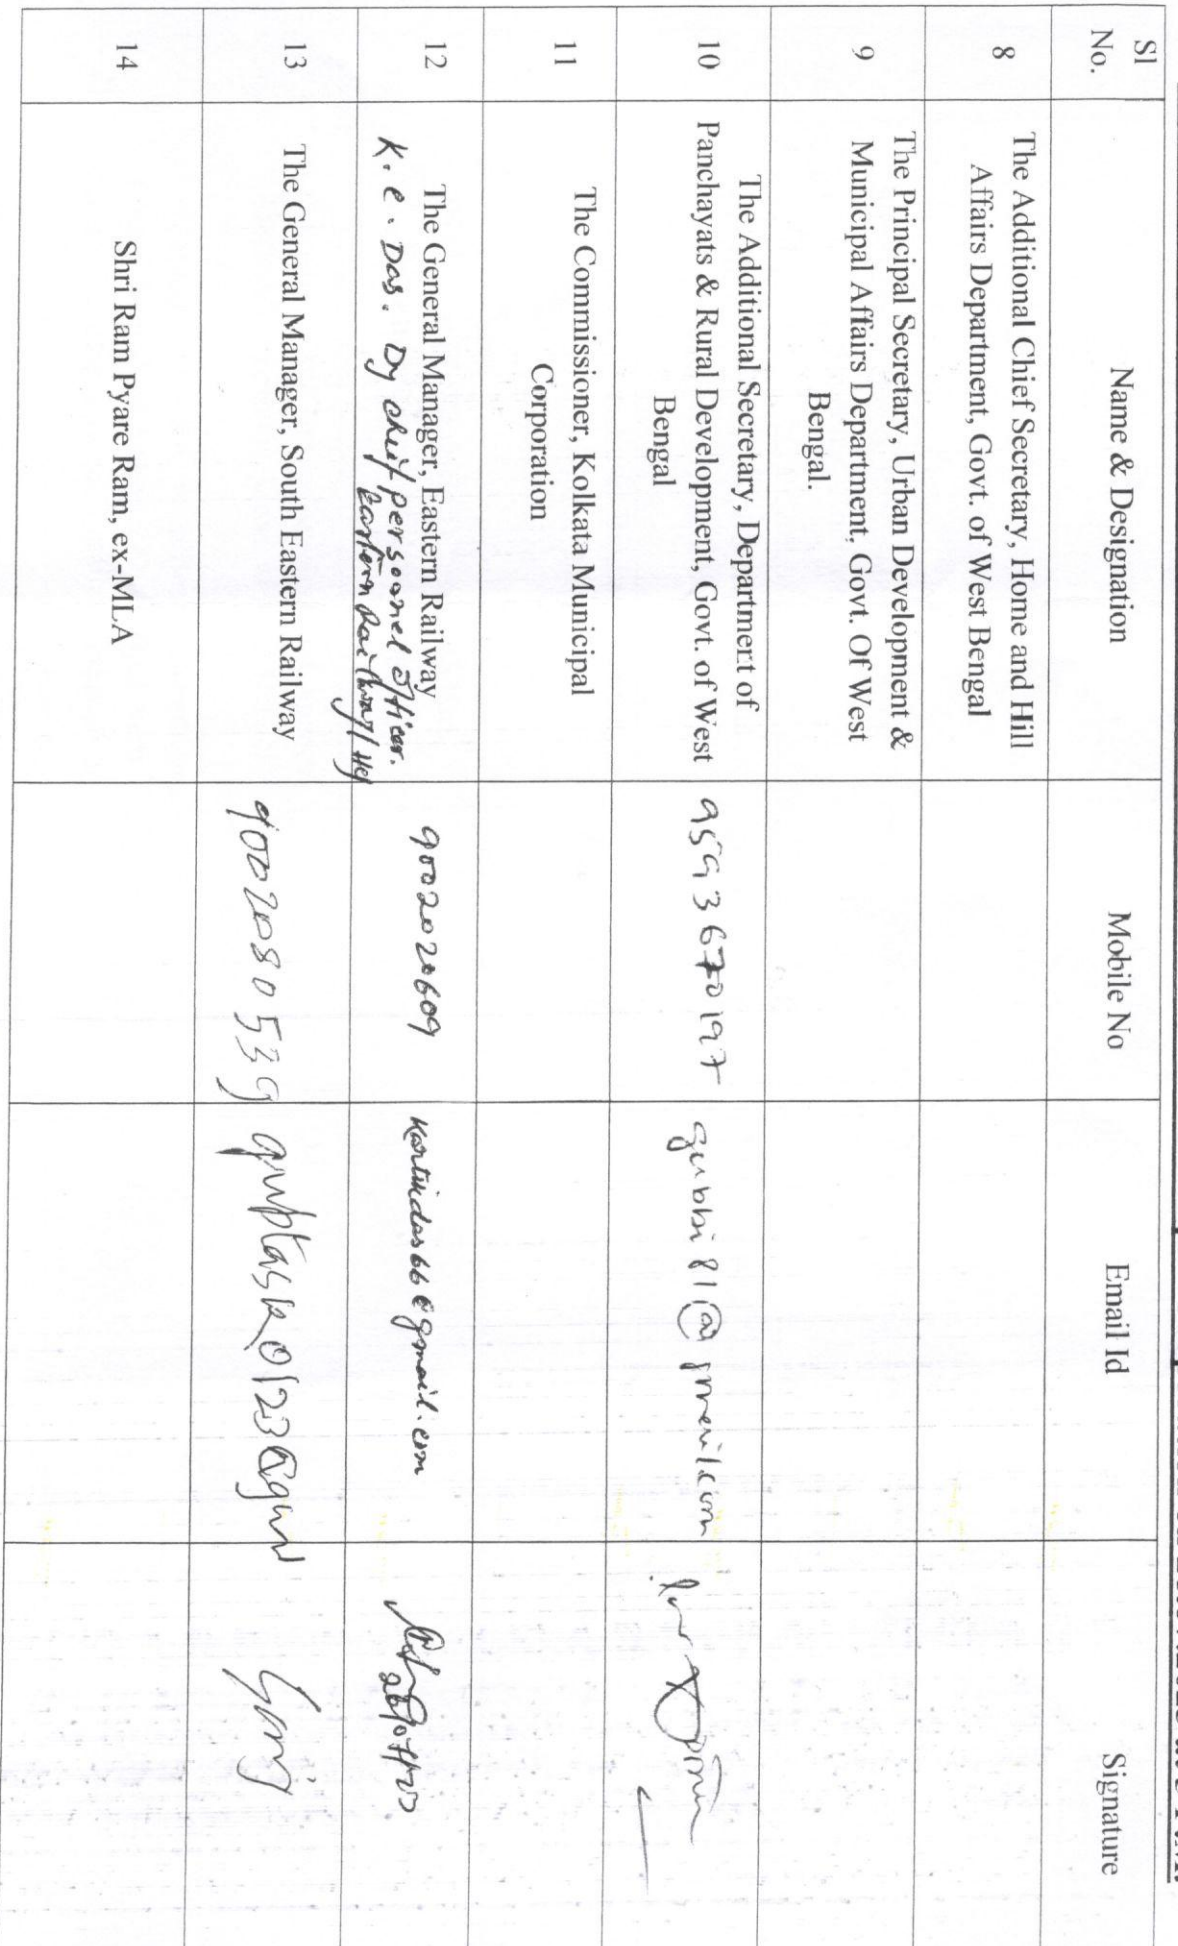 Sl No.
Name & Designation
Mobile No
Email Id
Signature
8
The Additional Chief Secretary, Home and Hill
Affairs Department, Govt. of West Bengal
9
The Principal Secretary, Urban Development &
Municipal Affairs Department, Govt. Of West
Bengal.
10
The Additional Secretary, Department of
Panchayats & Rural Development, Govt. of West
Bengal
9593670197
gubbi81@gmail.com
11
The Commissioner, Kolkata Municipal
Corporation
12
The General Manager, Eastern Railway
K. C. Das. Dy chief personnel officer.
Eastern Railway/
9002020609
kartikdas66@gmail.com
13
The General Manager, South Eastern Railway
9002080539
guptask0123@
14
Shri Ram Pyare Ram, ex-MLA